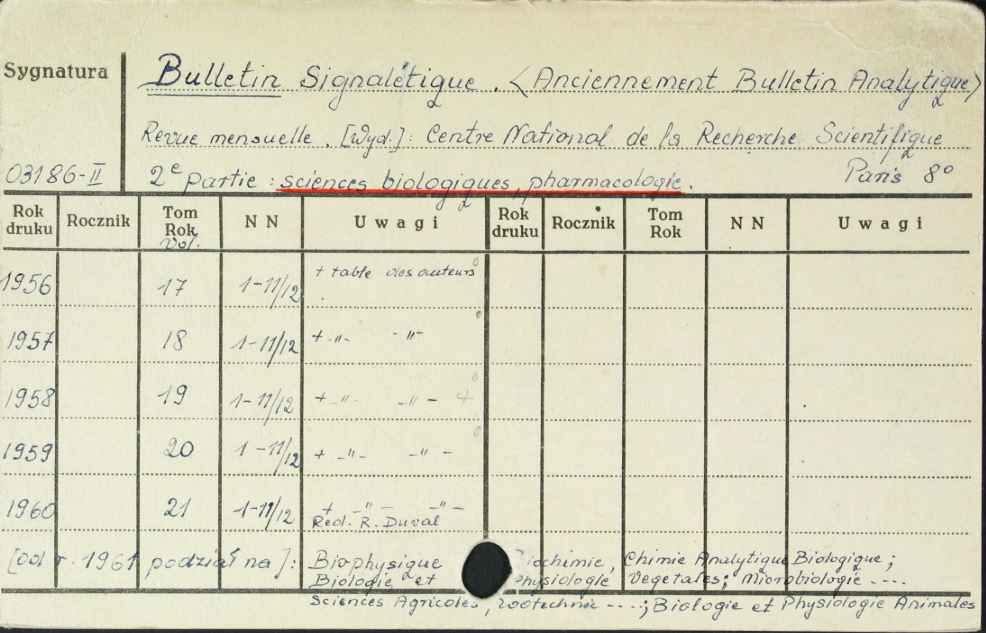 Sygnatura
Bulletin Signalétique. <Anciennement Bulletin Analytique>
Revue mensuelle. [Wyd.]: Centre National de la Recherche Scientifique
03186-II 2e partie: sciences biologiques, pharmacologie. Paris 8°
Rok druku Rocznik Tom Rok Vol. N N Uwagi Rok druku Rocznik Tom Rok N N Uwagi
1956 17 1-11/12 + table des auteurs
1957 18 1-11/12 + -"- -"-
1958 19 1-11/12 + -"- -"- 4
1959 20 1-11/12 + -"- -"-
1960 21 1-11/12 + -"- -"-
Red. R. Duval
[od r. 1961 podział na]: Biophysique Biochimie, Chimie Analytique Biologique;
Biologie et Physiologie Vegetales; Microbiologie ----
Sciences Agricoles, Zootechnie ----; Biologie et Physiologie Animales